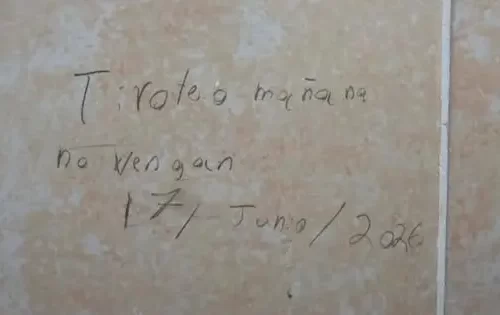 Tiroteo mañana
no vengan
17/Junio/2026